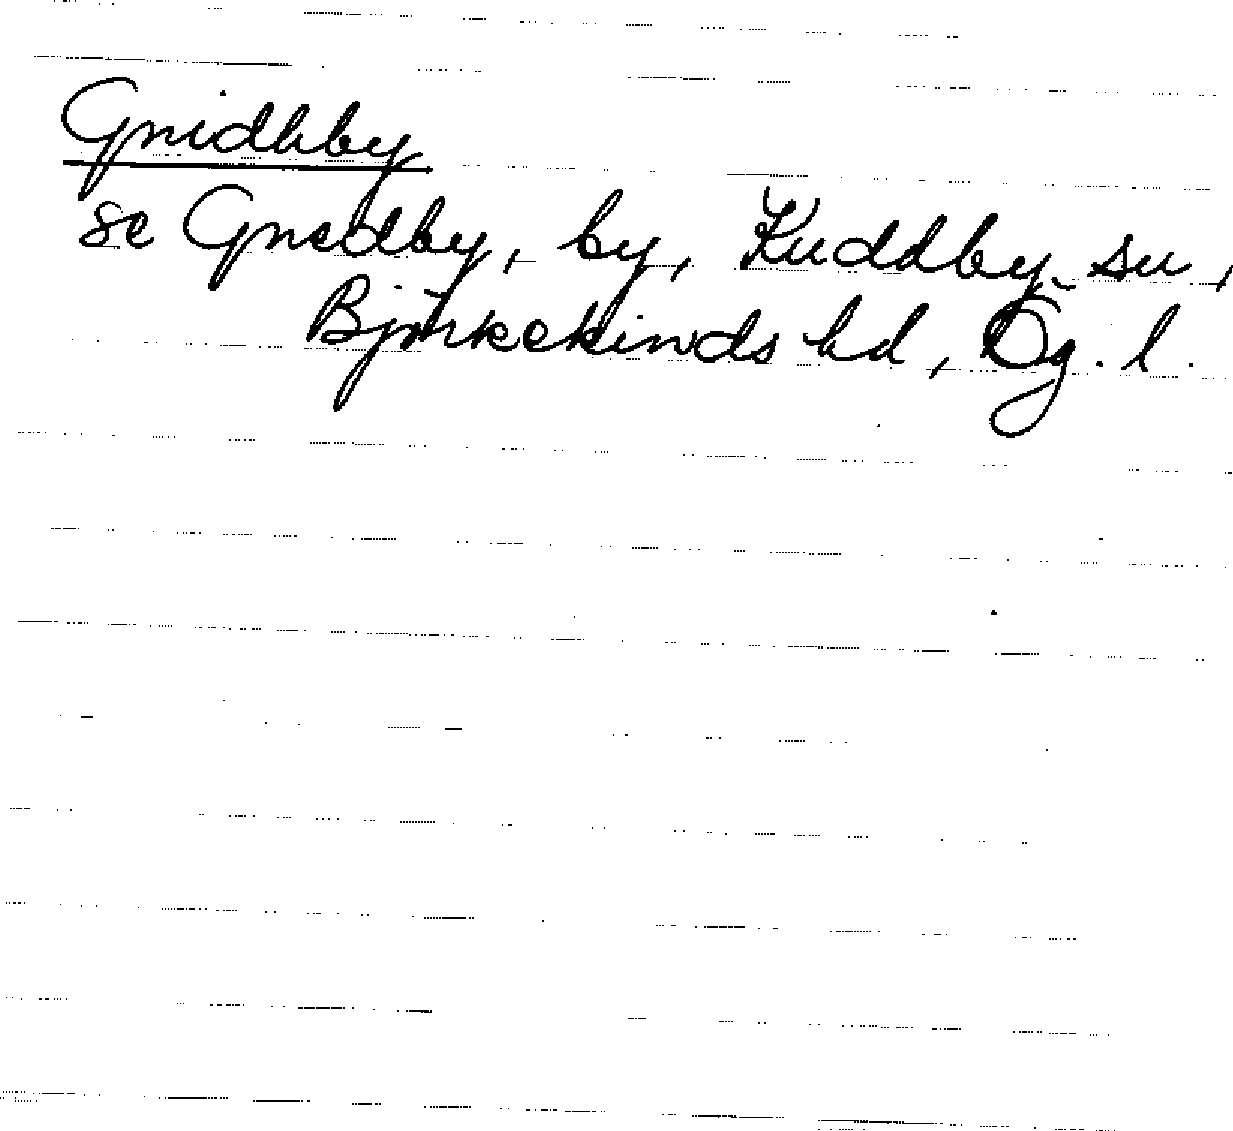 Gnidhby
se Gnedby, by, Kuddby su,
Björkekinds hd, Ög. l.